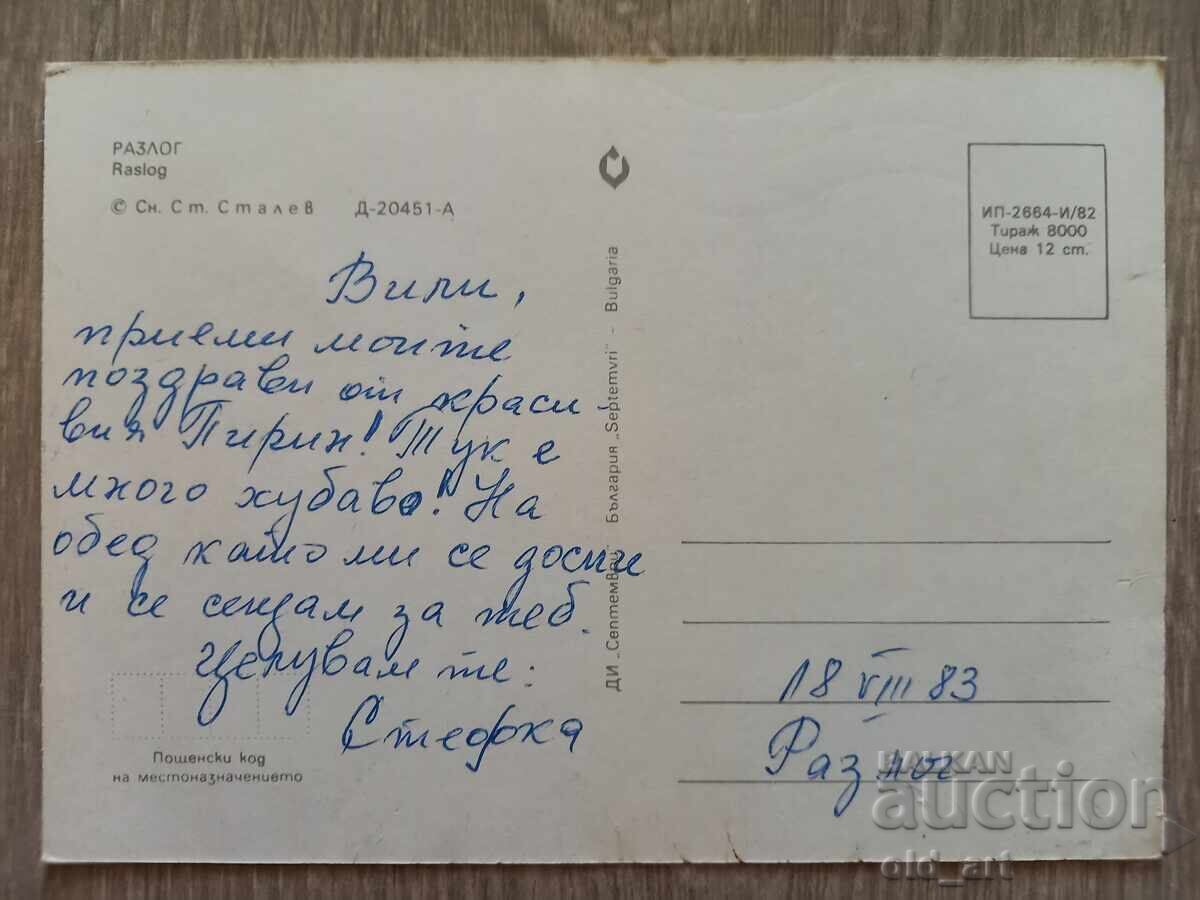 РАЗЛОГ
Raslog
© Сн. Ст. Сталев Д-20451-А
Вили,
приеми моите
поздрави от краси-
вия Пирин! Тук е
много хубаво! На
обед като ми се доспи
и се сещам за теб.
Целувам те:
Стефка
Пощенски код
на местоназначението
ДИ „Септември" - България „Septemvri" - Bulgaria
ИП-2664-И/82
Тираж 8000
Цена 12 ст.
18 VIII 83
Разлог
BALKAN
auction
old_art